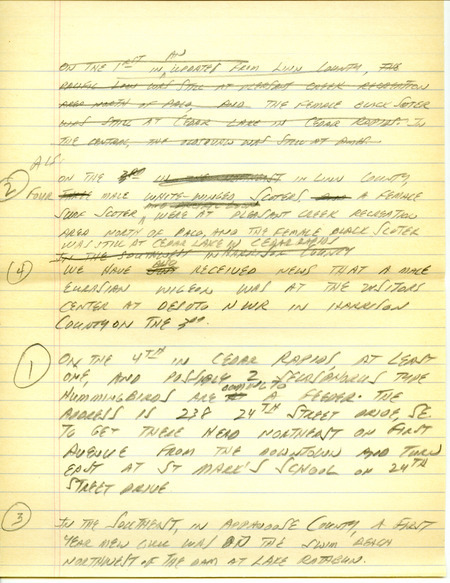 AN
ON THE 1ST IN, UPDATES FROM LINN COUNTY, THE
PACIFIC LOON WAS STILL AT PLEASANT CREEK RECREATION
AREA NORTH OF PALO, AND THE FEMALE BLACK SCOTER
WAS STILL AT CEDAR LAKE IN CEDAR RAPIDS. IN
THE CENTRAL, THE WAS STILL AT
ALS:
2 ON THE 3RD IN LINN COUNTY,
FOUR MALE WHITE-WINGED SCOTERS, A FEMALE
SURF SCOTER WERE AT PLEASANT CREEK RECREATION
AREA NORTH OF PALO, AND THE FEMALE BLACK SCOTER
WAS STILL AT CEDAR LAKE IN CEDAR RAPIDS
IN THE SOUTHWEST IN HARRISON COUNTY
4 WE HAVE RECEIVED NEWS THAT A MALE
EURASIAN WIGEON WAS AT THE VISITORS
CENTER AT DESOTO NWR IN HARRISON
COUNTY ON THE 3RD.
1 ON THE 4TH IN CEDAR RAPIDS, AT LEAST
ONE, AND POSSIBLY 2 SELASPHORUS TYPE
HUMMINGBIRDS ARE COMING TO A FEEDER. THE
ADDRESS IS 238 24TH STREET DRIVE, SE.
TO GET THERE HEAD NORTHEAST ON FIRST
AVENUE FROM THE DOWNTOWN AND TURN
EAST AT ST MARK'S SCHOOL ON 24TH
STREET DRIVE
3 IN THE SOUTHEAST, IN APPANOOSE COUNTY, A FIRST
YEAR MEW GULL WAS ON THE SWIM BEACH
NORTHWEST OF THE DAM AT LAKE RATHBUN.